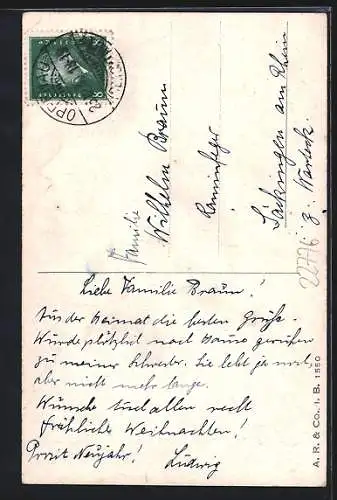 Familie
Wilhelm Braun
Kaminfeger
Säckingen am Rhein
z. Warteck
Liebe Familie Braun!
Aus der Heimat die besten Grüße.
Wurde plötzlich nach Hause gerufen
zu meiner Schwester. Sie lebt ja noch
aber nicht mehr lange.
Wünsche Euch allen recht
fröhliche Weihnachten!
Prosit Neujahr! Ludwig
22776
A. R. & Co. i. B. 1550
8 8